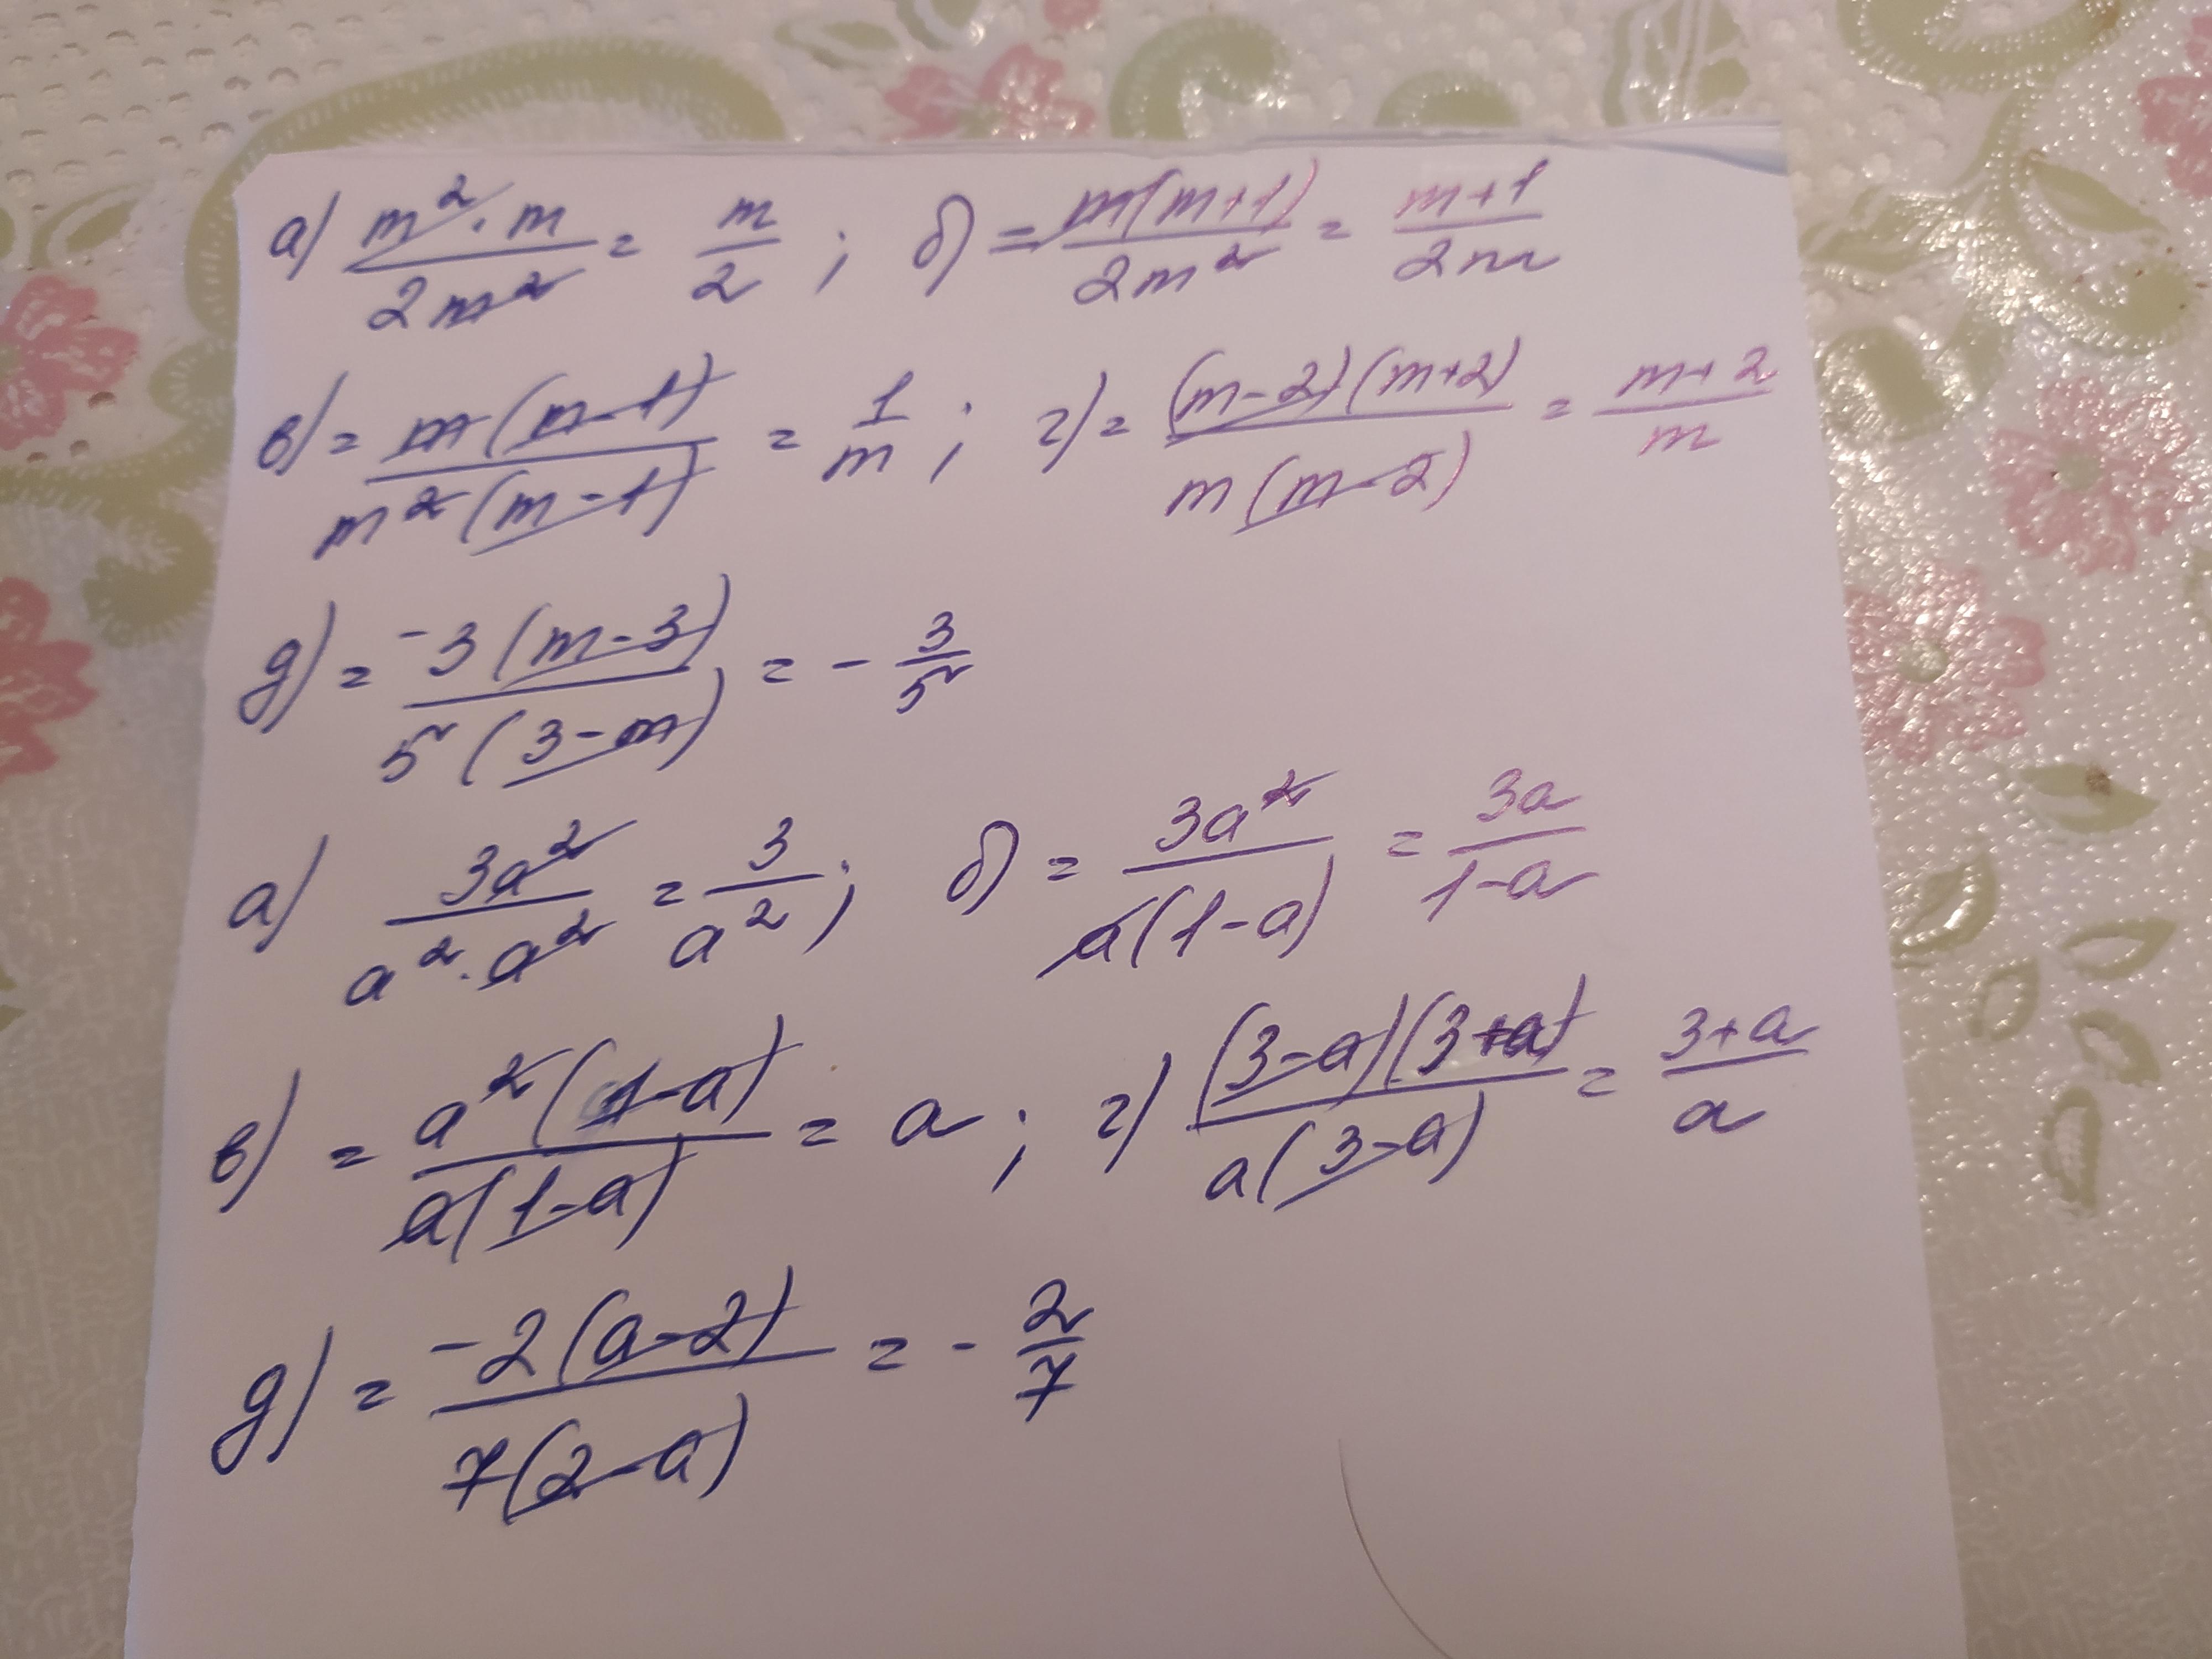 а) (m²·m)/(2m²) = m/2 ; б) = (m(m+1))/(2m²) = (m+1)/(2m)
в) = (m(m-1))/(m²(m-1)) = 1/m ; г) = ((m-2)(m+2))/(m(m-2)) = (m+2)/m
д) = (-3(m-3))/(5(3-m)) = - 3/5
а) (3a²)/(a²·a²) = 3/a² ; б) = (3a²)/(a(1-a)) = (3a)/(1-a)
в) = (a²(1-a))/(a(1-a)) = a ; г) ((3-a)(3+a))/(a(3-a)) = (3+a)/a
д) = (-2(a-2))/(7(2-a)) = - 2/7